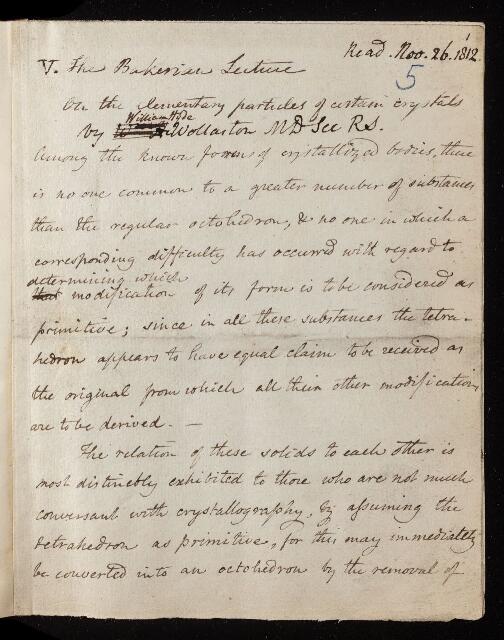 Read. Nov. 26. 1812.
5
V. The Bakerian Lecture
On the elementary particles of certain crystals
William Hyde
by Wollaston MD Sec RS.
Among the known forms of crystallized bodies, there
is no one common to a greater number of substances
than the regular octohedron, & no one in which a
corresponding difficulty has occurred with regard to
determining which
that modification of its form is to be considered as
primitive; since in all these substances the tetra-
hedron appears to have equal claim to be received as
the original from which all their other modifications
are to be derived. —
The relation of these solids to each other is
most distinctly exhibited to those who are not much
conversant with crystallography, by assuming the
tetrahedron as primitive, for this may immediately
be converted into an octohedron by the removal of